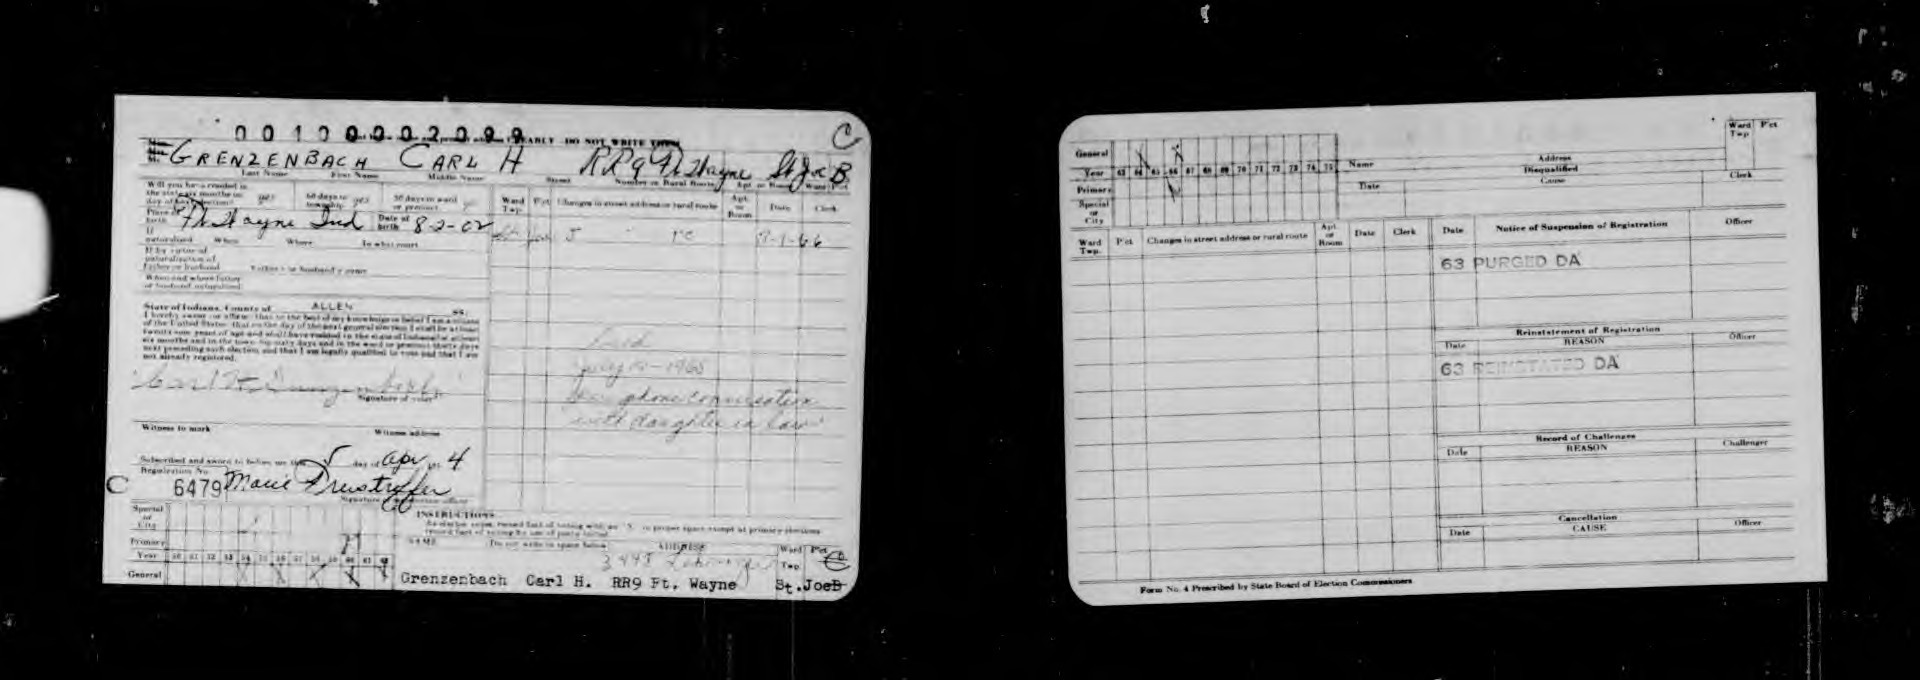 00100002099 EARLY DO NOT WRITE THESE
C
GRENZENBACH CARL H RR9 Ft. Wayne St Joe B
Last Name First Name Middle Name Street Number or Rural Route Apt. or Room Ward Pct
Will you have resided in
the state six months on
day of next election? yes 60 days in
township yes 30 days in ward
or precinct
Ward
Twp. Pct Changes in street address or rural route Apt.
or
Room Date Clerk
Place of
birth Ft Wayne Ind Date of
birth 8-2-02
If
naturalized When Where In what court
-1-66
If by virtue of
naturalization of
Father or husband Father's or husband's name
When and where father
or husband naturalized
State of Indiana, County of ALLEN ss:
I hereby swear or affirm that to the best of my knowledge or belief I am a citizen
of the United States that on the day of the next general election I shall be at least
twenty-one years of age and shall have resided in the state of Indiana at least
six months and in the township sixty days and in the ward or precinct thirty days
next preceding such election and that I am legally qualified to vote and that I am
not already registered.
1968
phone conversation
with daughter in law
Signature of voter
Witness to mark Witness address
Subscribed and sworn to before me this 5 day of Apr 4
Registration No.
C 6479 Marie
Signature of
INSTRUCTIONS
At election, record fact of voting with an "X" in proper space except at primary elections
record fact of voting by use of party initial
Special
or
City
Primary
Year 50 51 52 53 54 55 56 57 58 59 60 61 62
General
NAME Do not write in space below ADDRESS Ward
Twp. Pct
C
Grenzenbach Carl H. RR9 Ft. Wayne St.JoeB
General
Year 63 64 65 66 67 68 69 70 71 72 73 74 75
Primary
Special
or
City
Name Address Ward
Twp Pct
Disqualified
Date Cause Clerk
Ward
Twp. Pct Changes in street address or rural route Apt.
or
Room Date Clerk
Date Notice of Suspension of Registration Officer
63 PURGED DA
Reinstatement of Registration
Date REASON Officer
63 REINSTATED DA
Record of Challenges
Date REASON Challenger
Cancellation
Date CAUSE Officer
Form No. 4 Prescribed by State Board of Election Commissioners